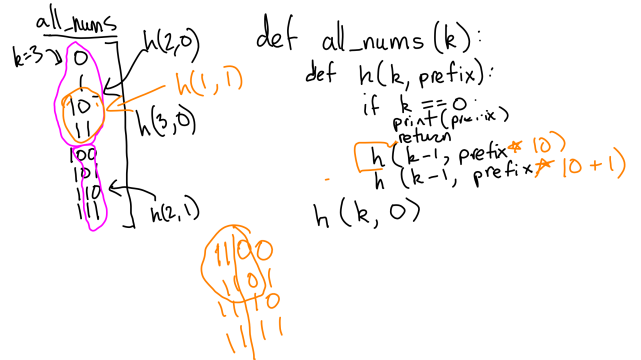 all_nums
k=3
0
1
10
11
100
101
110
111
h(2,0)
h(1,1)
h(3,0)
h(2,1)
def all_nums(k):
def h(k, prefix):
if k == 0
print(prefix)
return
h(k-1, prefix * 10)
h(k-1, prefix * 10 + 1)
h(k, 0)
1100
1101
1110
1111